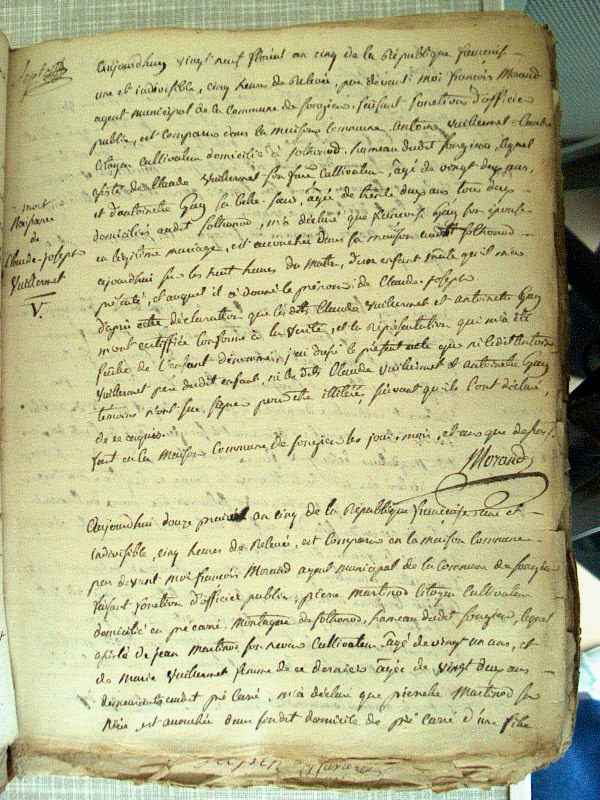 Sept
aujourdhuy vingt neuf floréal an cinq de la République francaise
une et indivisible, cinq heures de Relevée, par devant moi francois Morand
agent municipal de la Commune de Songieu, faisant fonctions d'officier
public, est comparu dans la maison commune, Antoine Vuillermet Claude
Citoyen Cultivateur domicilié à Sothonod, hameau dudit Songieu, lequel
assisté de Claude Vuillermet son frère Cultivateur, âgé de vingt deux ans,
et d'antoinette Gay sa belle soeur, agée de trente deux ans tous deux
domiciliés audit Sothonod, m'a déclaré que francoise Gay son épouse
en légitime mariage, est accouchée dans sa maison audit Sothonod
aujourdhui sur les huit heures du matin, d'un enfant male qu'il m'a
présenté, et auquel il a donné le prénom de Claude-Joseph
d'après cette déclaration que lesdits Claude Vuillermet et antoinette Gay
m'ont certiffiée conforme à la vérité, et la Représentation qui m'a été
faite de l'enfant dénommé, j'ai dressé le présent acte que ni ledit Antoine
Vuillermet père dudit enfant, ni lesdits Claude Vuillermet et antoinette Gay
témoins n'ont su signer pour être illitérés, suivant qu'ils l'ont déclaré,
de ce enquis.
fait en la Maison Commune de Songieu les jour, mois, et an que dessus.
Morand
naissance
de
Claude-Joseph
Vuillermet
V.
Aujourdhui douze prairial an cinq de la République francaise une et
indivisible, cinq heures de Relevée, est comparu en la maison commune
par devant moi francois Morand agent municipal de la commune de Songieu
faisant fonction d'officier public, pierre martinod citoyen Cultivateur
domicilié en pré carré, montagne de Sothonod, hameau dudit Songieu, lequel
assisté de jean Martinod son neveu Cultivateur âgé de vingt un ans, et
de marie Vuillermet femme de ce dernier agée de vingt deux ans
demeurants audit pré Carré, m'a déclaré que pierrette Martinod sa
Nièce est accouchée dans sondit domicile de pré carré d'une fille